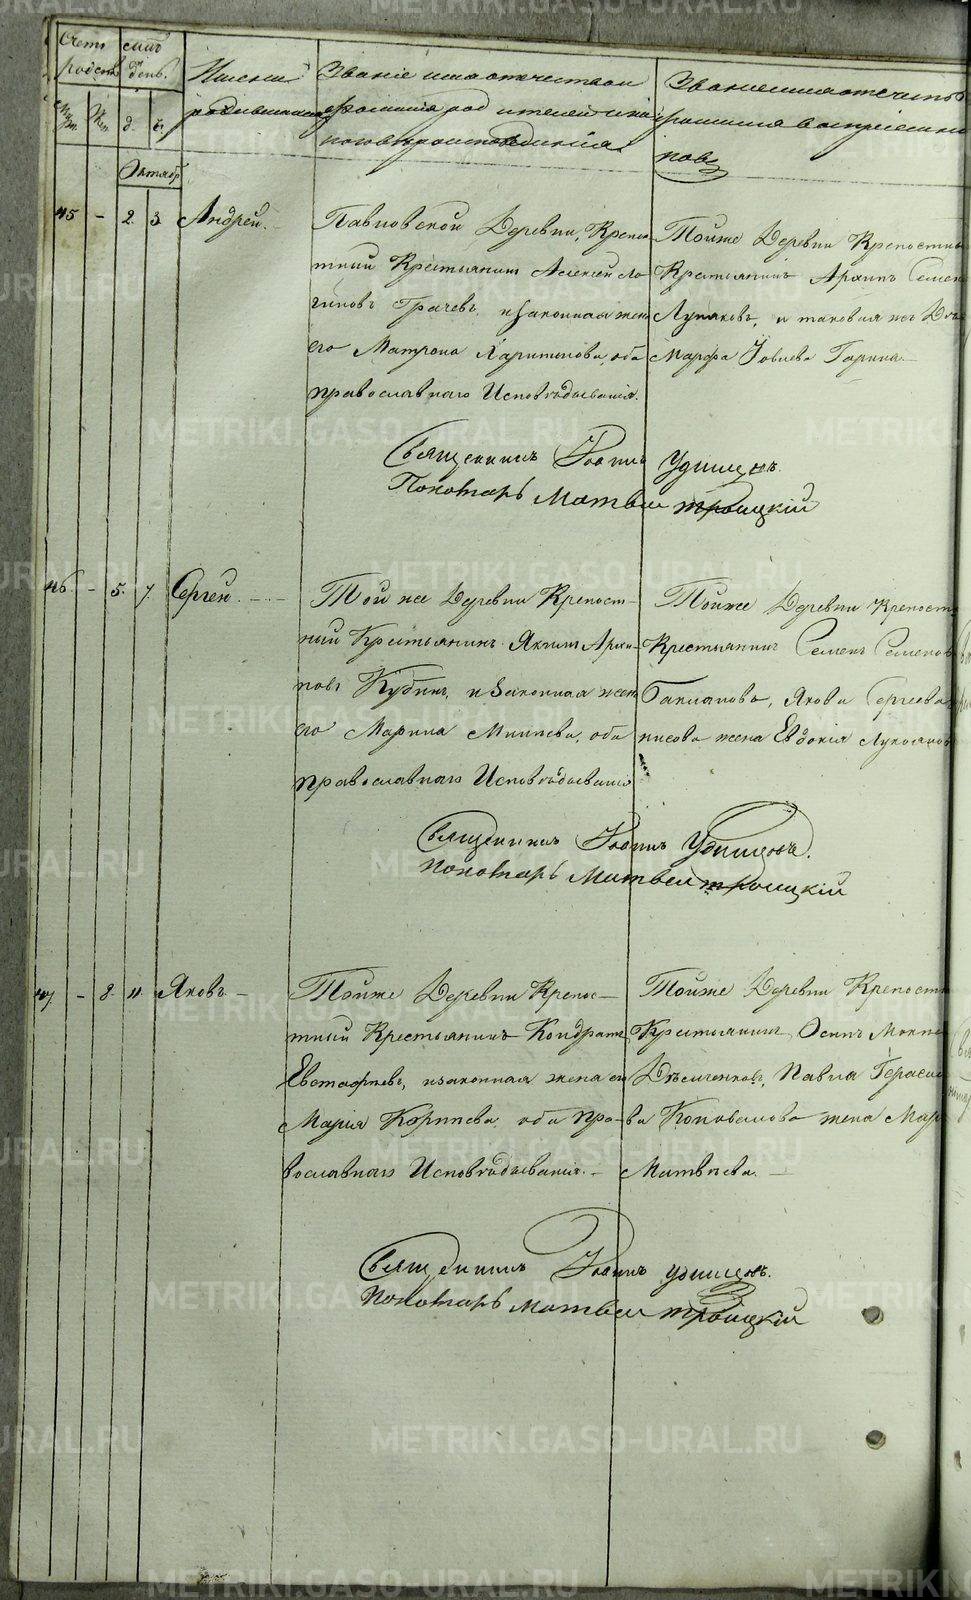 Счетъ
родск
сяцъ
день.
Имена
родившихся
Званіе имя отечество и
фамилія родителей и ка
кого вероисповеданія
Званіе имя отечество
фамилія воспріемни
ковъ
д. к.
Октябр
45 - 2. 3. Андрей.
Павловской Деревни, Крепос
тный Крестьянинъ Алексей Ло
гиновъ Грачевъ, и законная жена
его Матрона Харитонова, оба
православнаго Исповѣдыванія.
Тойже Деревни Крепостно
Крестьянинъ Архипъ Семен
Лунзковъ, и таковая же
Марфа Іовлева Горина
Священникъ Іоаннъ Удинцовъ.
Пономарь Матвеи Троицкій
46. - 5. 7. Сергей.
Той же Деревни Крепост-
ный Крестьянинъ Якимъ Архи-
повъ Кубинъ, и законная жена
его Марина Минеева, оба
православнаго Исповѣдыванія
Тойже Деревни Крепост
Крестьянинъ Семенъ Семенов
Баклановъ, Якова Сергеева
нисова жена Евдокія Лукоянов
Священникъ Іоаннъ Удинцовъ.
Пономарь Матвеи Троицкій
47 - 8. 11. Яковъ. -
Тойже Деревни Крепос-
тный Крестьянинъ Кондратъ
Евстафиевъ, и законная жена ег
Марія Корнеева, оба пра-
вославнаго Исповѣдыванія. -
Тойже Деревни Крепостн
Крестьянинъ Осипъ
Павла Герасим
ва Коновалова жена Мар
Матвѣева.
Священникъ Іоаннъ Удинцовъ.
Пономарь Матвеи Троицкій
METRIKI.GASO-URAL.RU